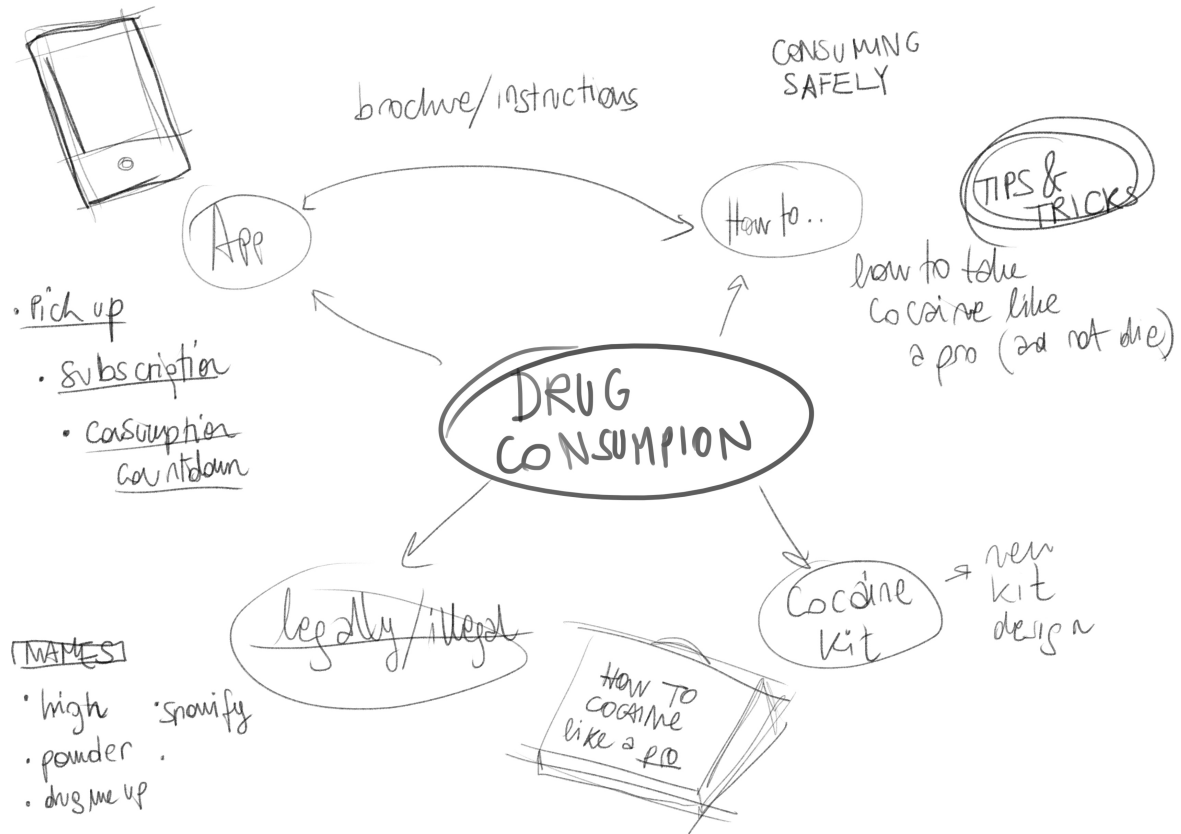 CONSUMING
SAFELY
brochure/instructions
TIPS &
TRICKS
App
How to..
how to take
cocaine like
a pro (and not die)
• Pick up
• subscription
• consumption
countdown
DRUG
CONSUMPION
legally/illegal
Cocaine
Kit
new
kit
design
NAMES
• high
• snowify
• powder
•
• drug me up
HOW TO
COCAINE
like a pro